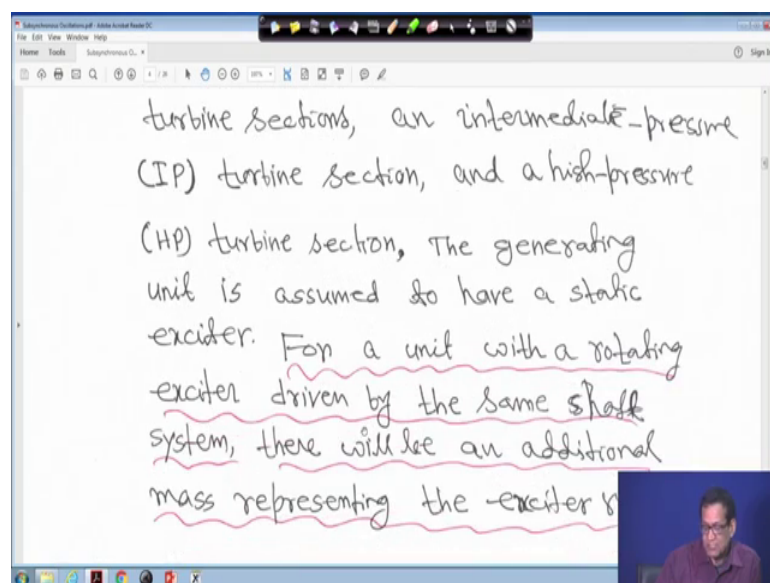 Subsynchronous Oscillations.pdf - Adobe Acrobat Reader DC
File Edit View Window Help
Home Tools Subsynchronous O... ×
Sign In
turbine sections, an intermediate-pressure
(IP) turbine section, and a high-pressure
(HP) turbine section, The generating
unit is assumed to have a static
exciter. For a unit with a rotating
exciter driven by the same shaft
system, there will be an additional
mass representing the exciter